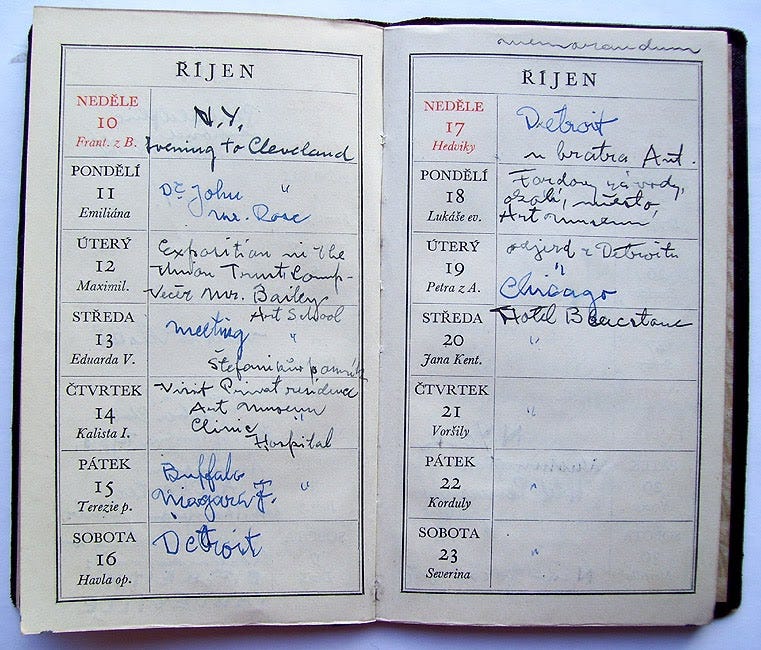 ŘÍJEN
NEDĚLE
10
Frant. z B.
N.Y.
Evening to Cleveland
PONDĚLÍ
11
Emiliána
Dr. John "
Mr. Rose
ÚTERÝ
12
Maximil.
Exposition in the
Union Trust Comp-
Večer Mr. Bailey
Art School
STŘEDA
13
Eduarda V.
meeting "
Štefanikův
ČTVRTEK
14
Kalista I.
Visit Privat residence
Art museum
Clinic "
Hospital
PÁTEK
15
Terezie p.
Buffalo
Niagara F. "
SOBOTA
16
Havla op.
Detroit
memorandum
ŘÍJEN
NEDĚLE
17
Hedviky
Detroit
u bratra Ant.
PONDĚLÍ
18
Lukáše ev.
Fordovy závody,
město,
Art museum
ÚTERÝ
19
Petra z A.
odjezd z Detroitu
"
Chicago
STŘEDA
20
Jana Kent.
Hotel Blacstone
"
ČTVRTEK
21
Voršily
"
PÁTEK
22
Korduly
"
SOBOTA
23
Severina
"